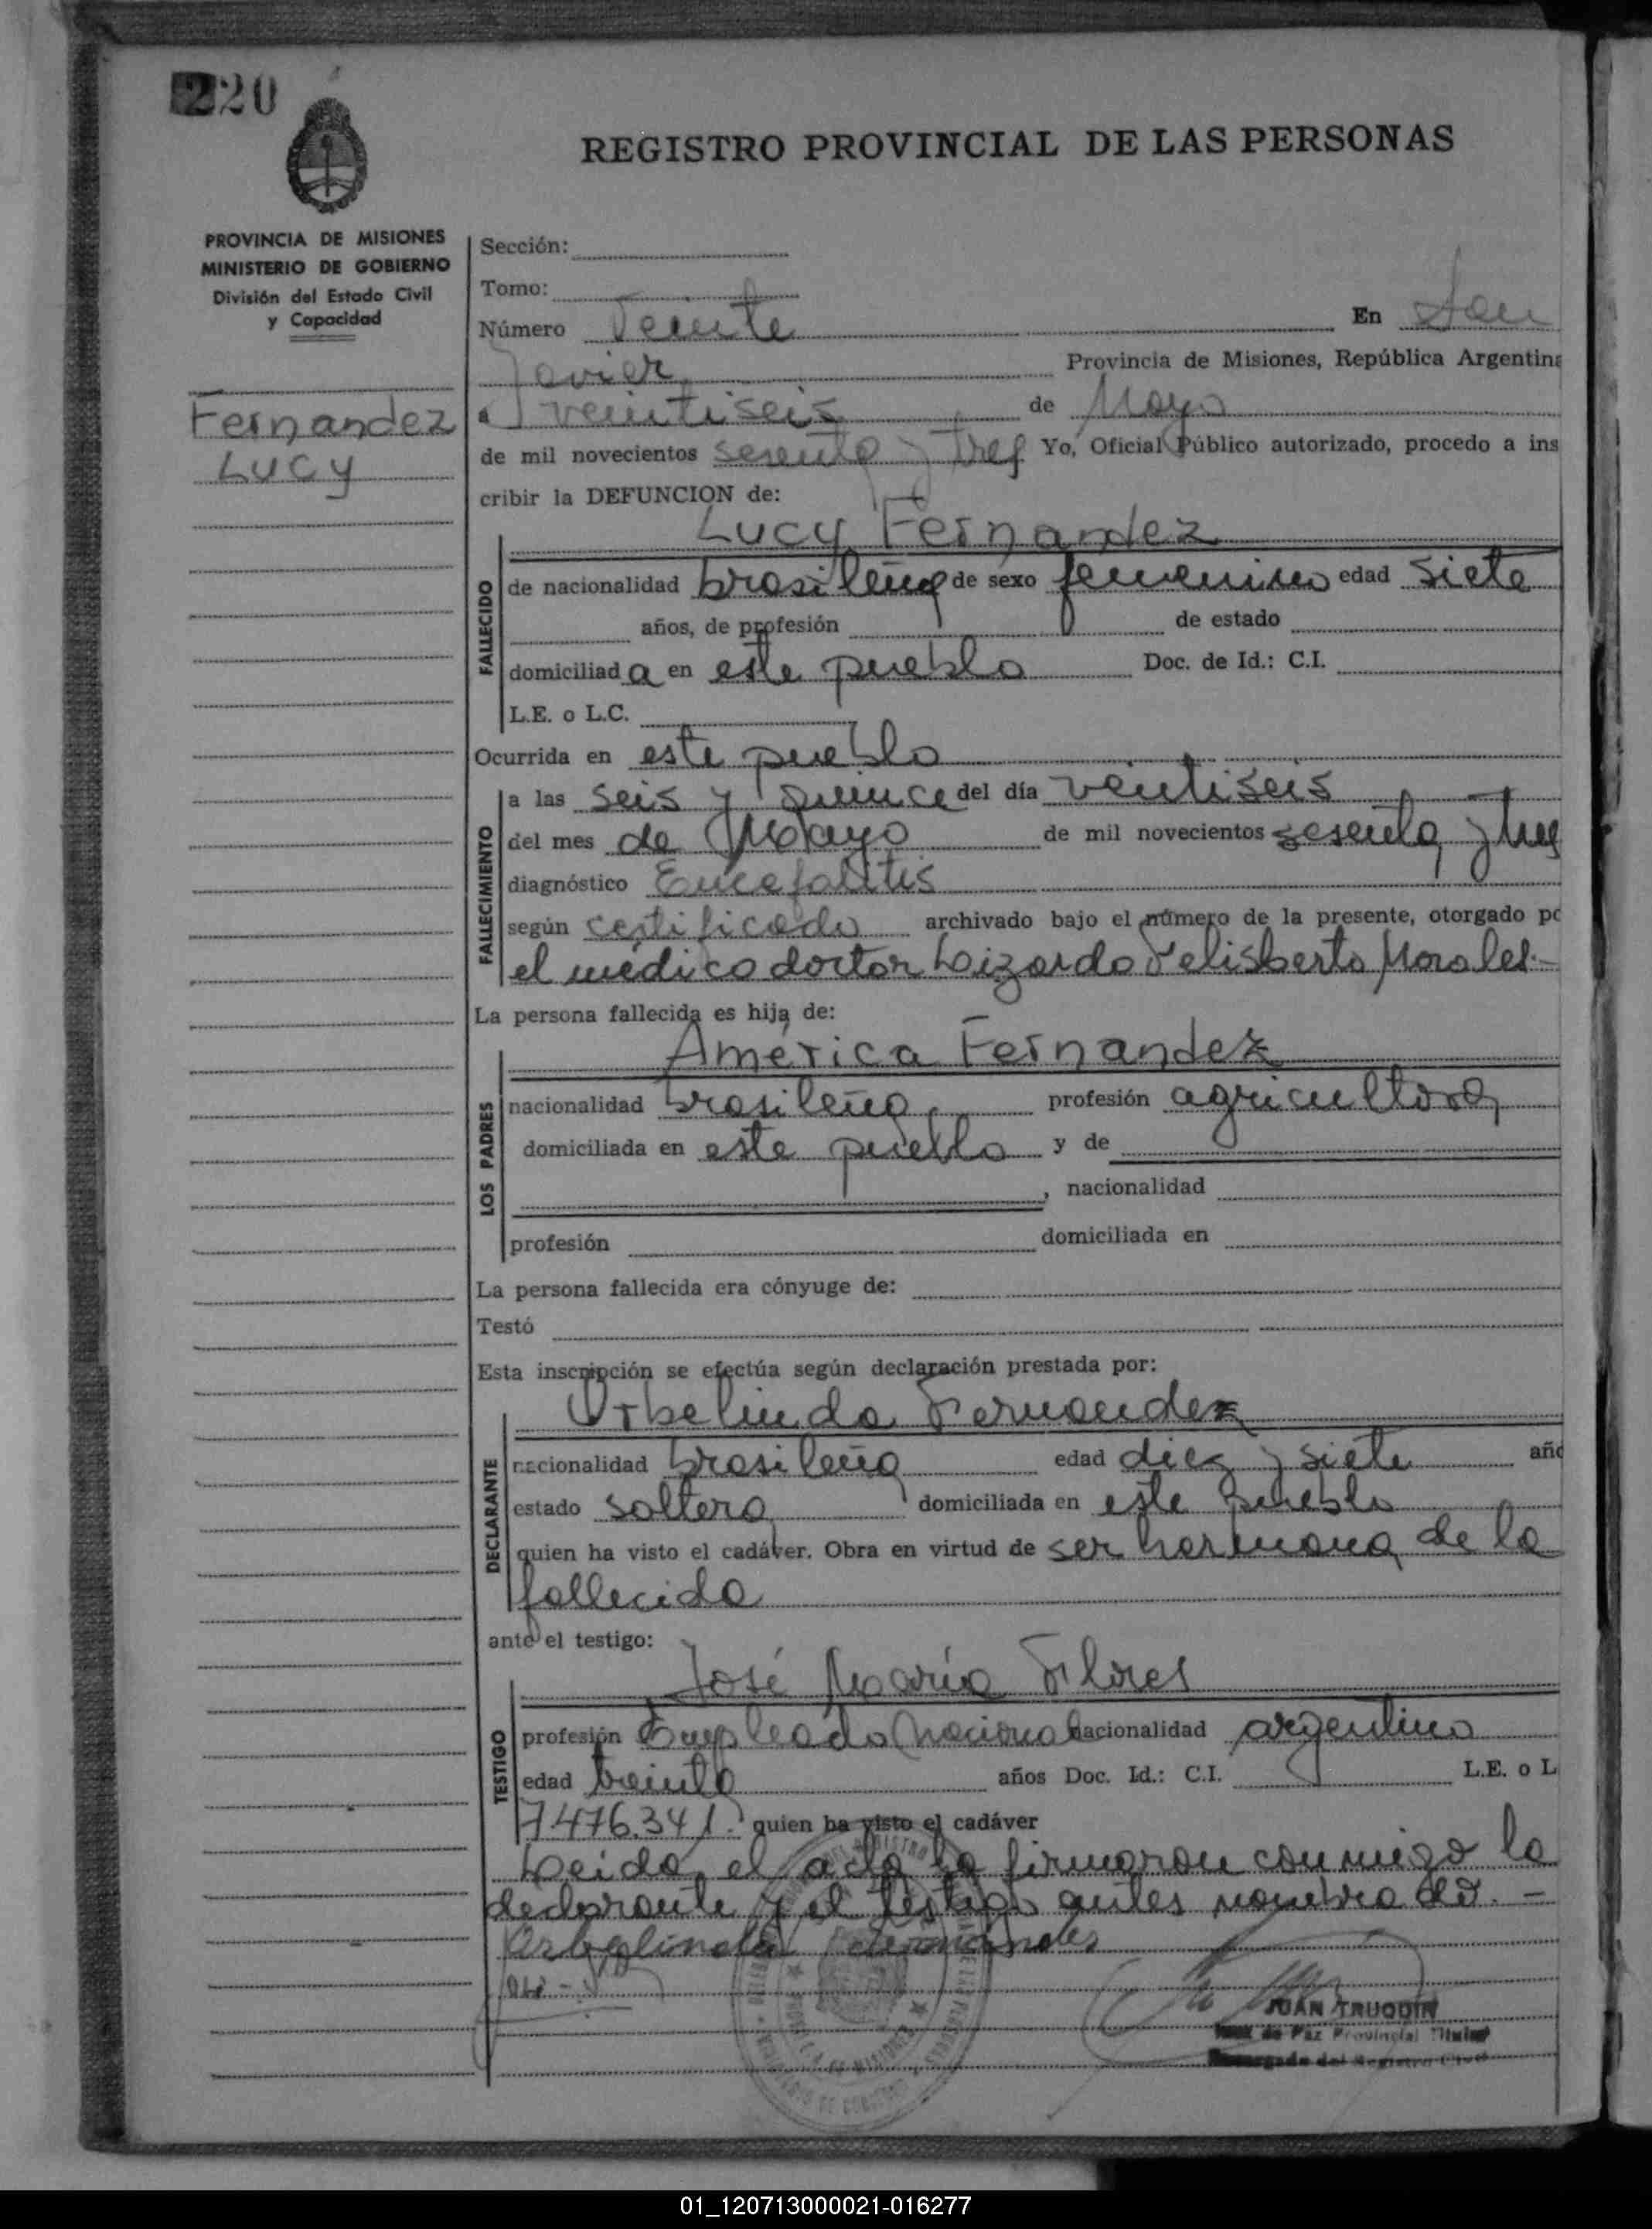 220
REGISTRO PROVINCIAL DE LAS PERSONAS
PROVINCIA DE MISIONES
MINISTERIO DE GOBIERNO
División del Estado Civil
y Capacidad
Fernandez
Lucy
Sección:
Tomo:
Número Veinte En San
Javier Provincia de Misiones, República Argentina
a veintiseis de Mayo
de mil novecientos sesenta y tres Yo, Oficial Público autorizado, procedo a ins
cribir la DEFUNCION de:
Lucy Fernandez
FALLECIDO
de nacionalidad brasileña de sexo femenino edad siete
años, de profesión de estado
domiciliada en este pueblo Doc. de Id.: C.I.
L.E. o L.C.
Ocurrida en este pueblo
FALLECIMIENTO
a las seis y quince del día veintiseis
del mes de Mayo de mil novecientos sesenta y tres
diagnóstico Encefalitis
según certificado archivado bajo el número de la presente, otorgado po
el médico doctor Lizardo Felisberto Morales.-
La persona fallecida es hija de:
América Fernandez
LOS PADRES
nacionalidad brasileña profesión agricultora
domiciliada en este pueblo y de
, nacionalidad
profesión domiciliada en
La persona fallecida era cónyuge de:
Testó
Esta inscripción se efectúa según declaración prestada por:
Orbelinda Fernandez
DECLARANTE
nacionalidad brasileña edad diez y siete año
estado soltera domiciliada en este pueblo
quien ha visto el cadáver. Obra en virtud de ser hermana de la
fallecida
ante el testigo:
José María Flores
TESTIGO
profesión Empleado Nacional nacionalidad argentino
edad treinta años Doc. Id.: C.I. L.E. o L
7.476.341. quien ha visto el cadáver
Leida el acta la firmaron conmigo la
declarante y el testigo antes nombrado. -
Orbelinda Fernandes
JUAN TRUQUIN
Juez de Paz Provincial Titular
Encargado del Registro Civil
01_120713000021-016277